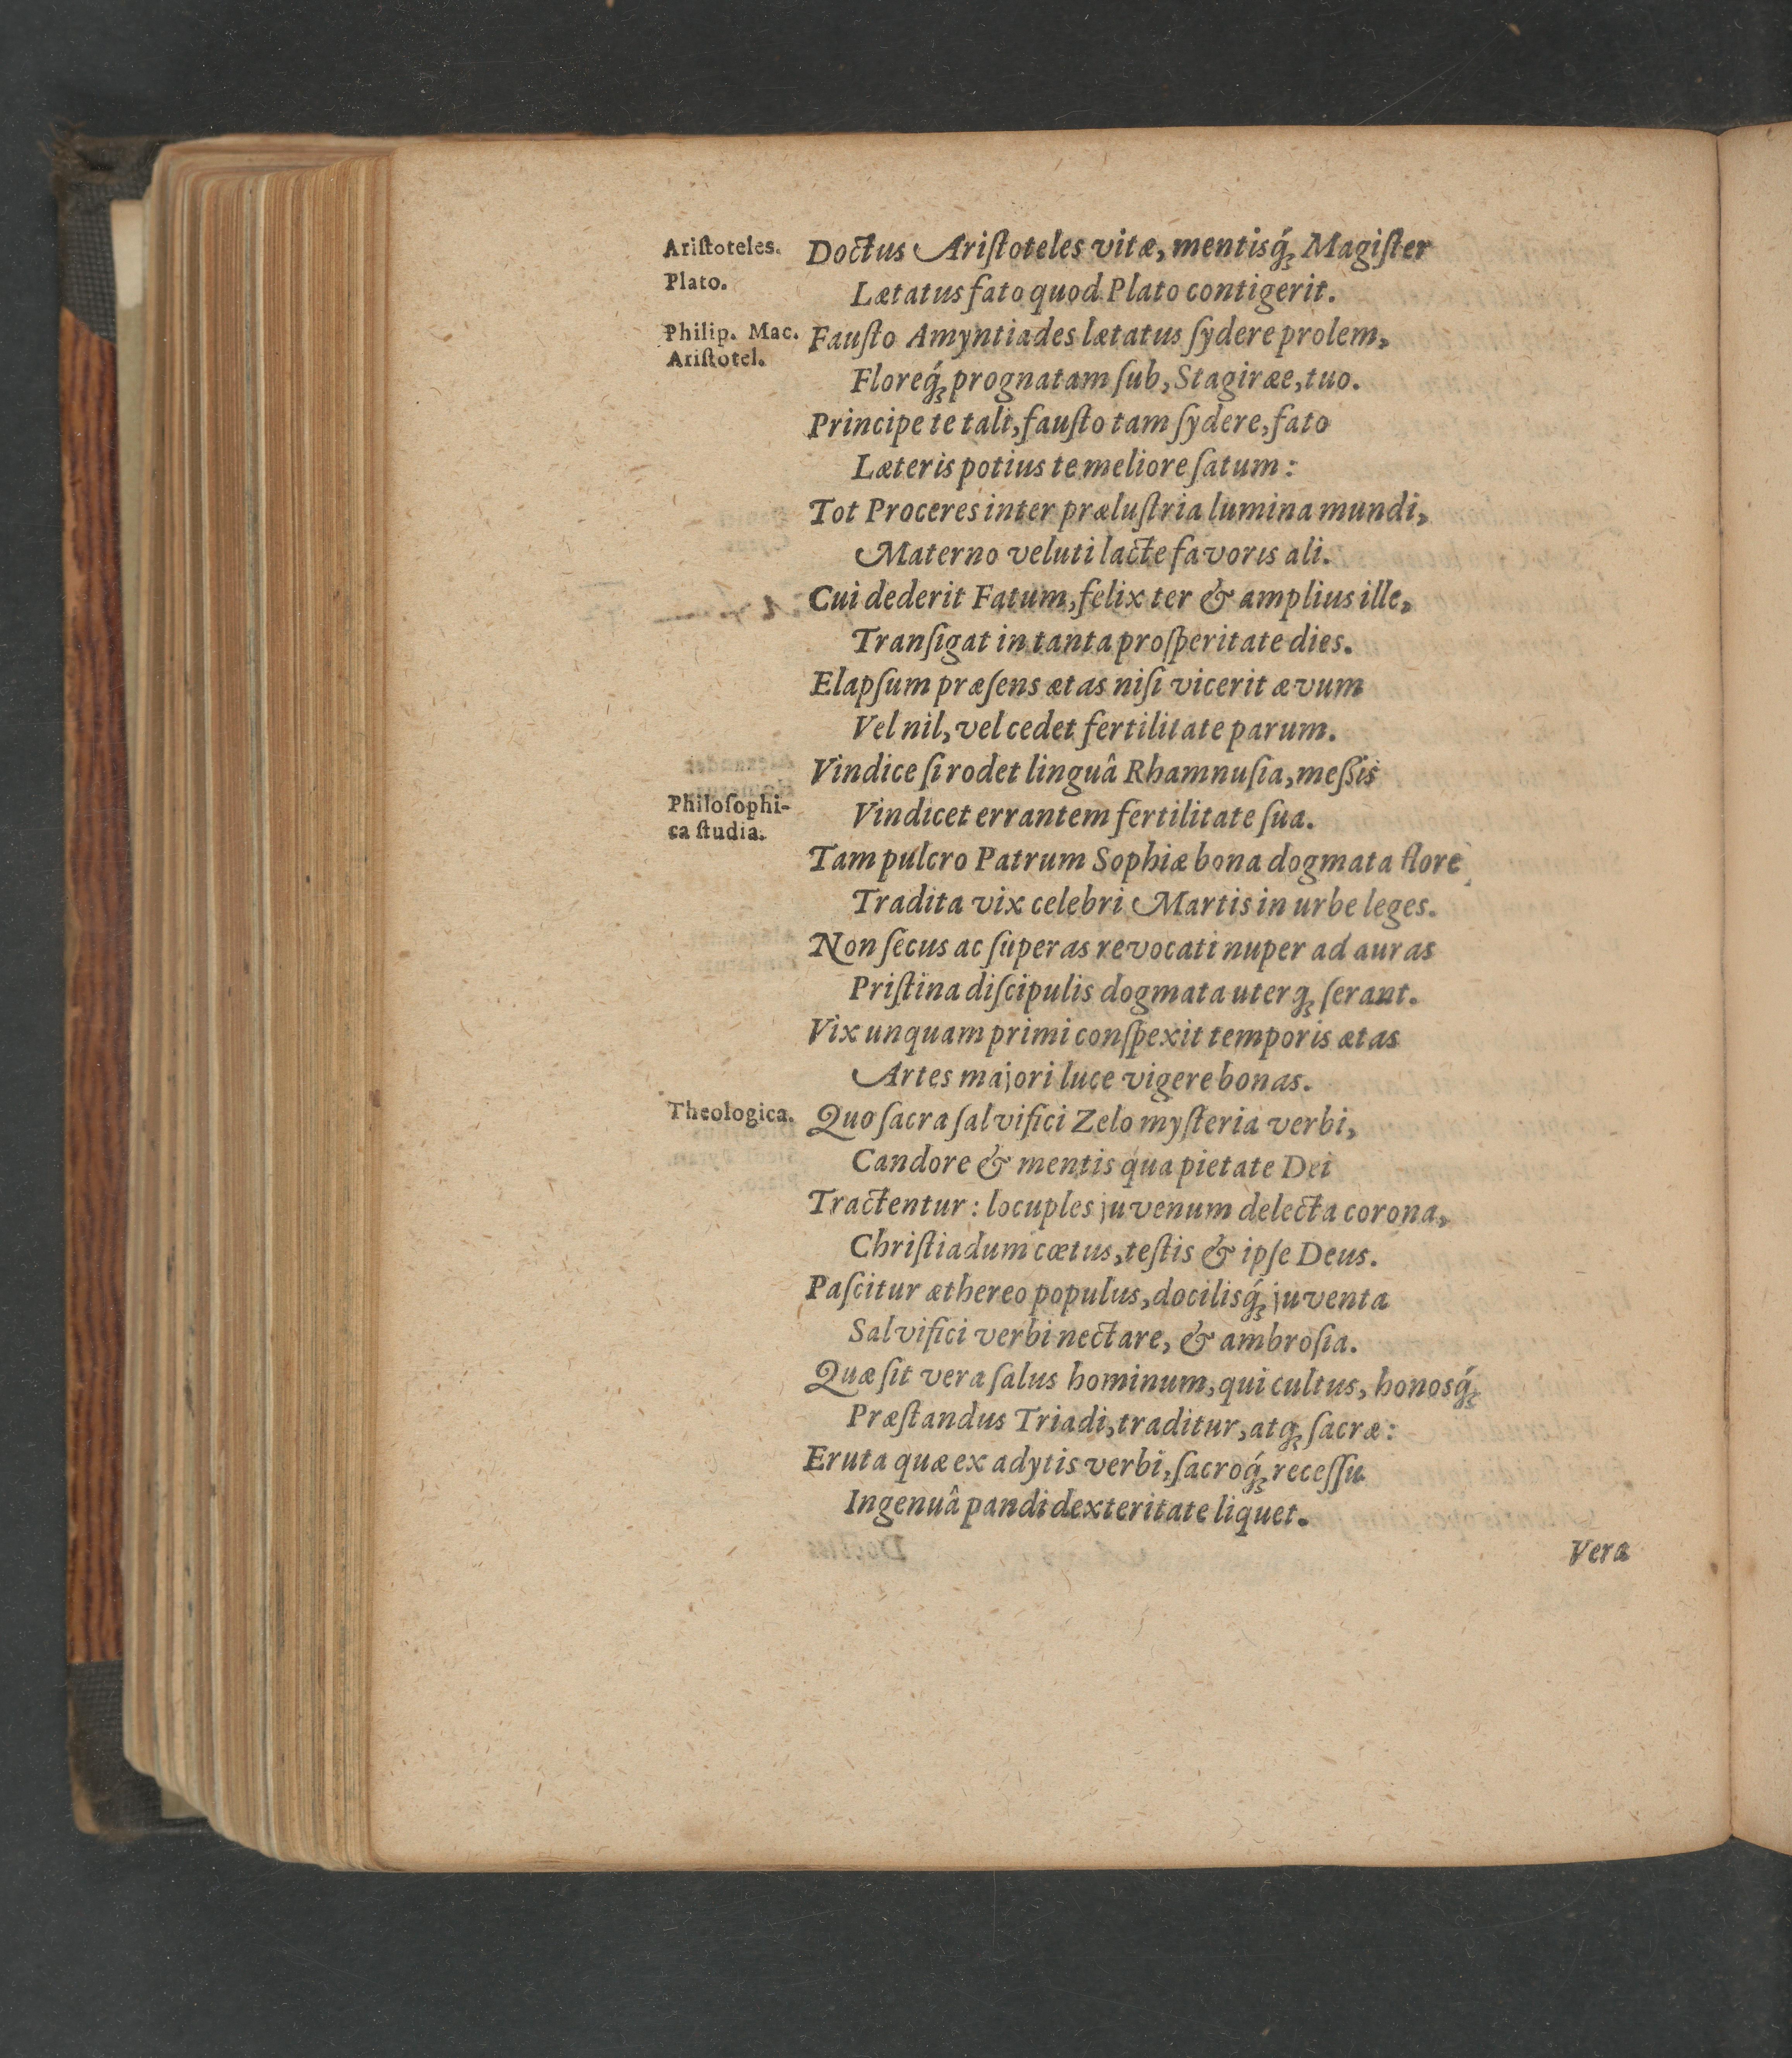 Ariſtoteles.
Doctus Ariſtoteles vitæ, mentisq́; Magiſter
Plato.
Lætatus fato quod Plato contigerit.
Philip. Mac.
Fauſto Amyntiades lætatus ſydere prolem,
Ariſtotel.
Floreq́; prognatam ſub, Stagiræe, tuo.
Principe te tali, fauſto tam ſydere, fato
Læteris potius te meliore ſatum:
Tot Proceres inter præluſtria lumina mundi,
Materno veluti lacte favoris ali.
Cui dederit Fatum, felix ter & amplius ille,
Tranſigat in tanta proſperitate dies.
Elapſum præſens ætas niſi vicerit ævum
Vel nil, vel cedet fertilitate parum.
Vindice ſi rodet linguâ Rhamnuſia, meßis
Philoſophi-
ca ſtudia.
Vindicet errantem fertilitate ſua.
Tam pulcro Patrum Sophiæ bona dogmata flore
Tradita vix celebri Martis in urbe leges.
Non ſecus ac ſuperas revocati nuper ad auras
Priſtina diſcipulis dogmata uterq; ſerant.
Vix unquam primi conſpexit temporis ætas
Artes majori luce vigere bonas.
Theologica.
Quo ſacra ſalvifici Zelo myſteria verbi,
Candore & mentis qua pietate Dei
Tractentur: locuples juvenum delecta corona,
Chriſtiadum cœtus, teſtis & ipſe Deus.
Paſcitur æthereo populus, docilisq́; juventa
Salvifici verbi nectare, & ambroſia.
Quæ ſit vera ſalus hominum, qui cultus, honosq́;
Præſtandus Triadi, traditur, atq; ſacræ:
Eruta quæ ex adytis verbi, ſacroq́; receſſu
Ingenuâ pandi dexteritate liquet.
Vera